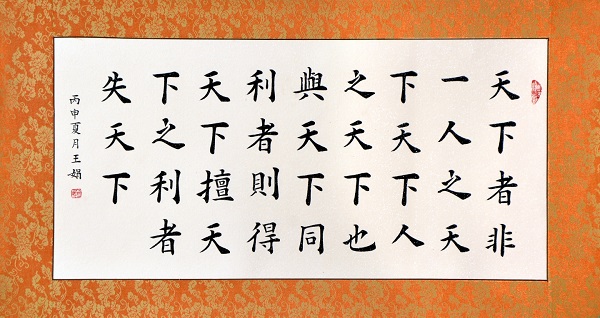 天下者非
一人之天
下天下人
之天下也
與天下同
利者則得
天下擅天
下之利者
失天下
丙申夏月王娟